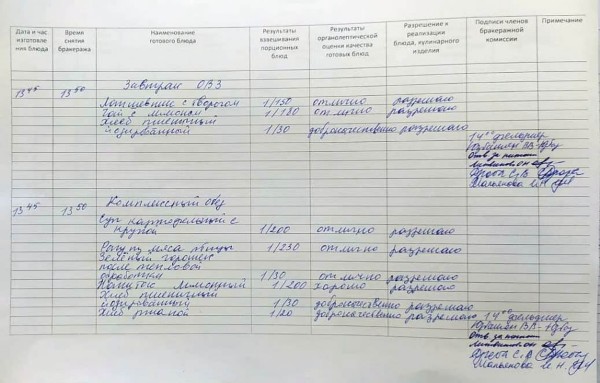 Дата и час изготовления блюда
Время снятия бракеража
Наименование готового блюда
Результаты взвешивания порционных блюд
Результаты органолептической оценки качества готовых блюд
Разрешение к реализации блюда, кулинарного изделия
Подписи членов бракеражной комиссии
Примечание
13 45 13 50 Завтрак ОВЗ
Лапшевник с творогом 1/150 отлично разрешаю
Чай с лимоном 1/180 отлично разрешаю
Хлеб пшеничный
йодированный 1/30 доброкачественно разрешаю
14 00 фельдшер
Отв за
13 45 13 50 Комплексный обед
Суп картофельный с
крупой 1/200 отлично разрешаю
Рагу из мяса птицы 1/230 отлично разрешаю
Зелёный горошек
после тепловой
обработки 1/30 отлично разрешаю
Напиток лимонный 1/200 хорошо разрешаю
Хлеб пшеничный
йодированный 1/30 доброкачественно разрешаю
Хлеб ржаной 1/20 доброкачественно разрешаю
14 00 фельдшер
Отв за